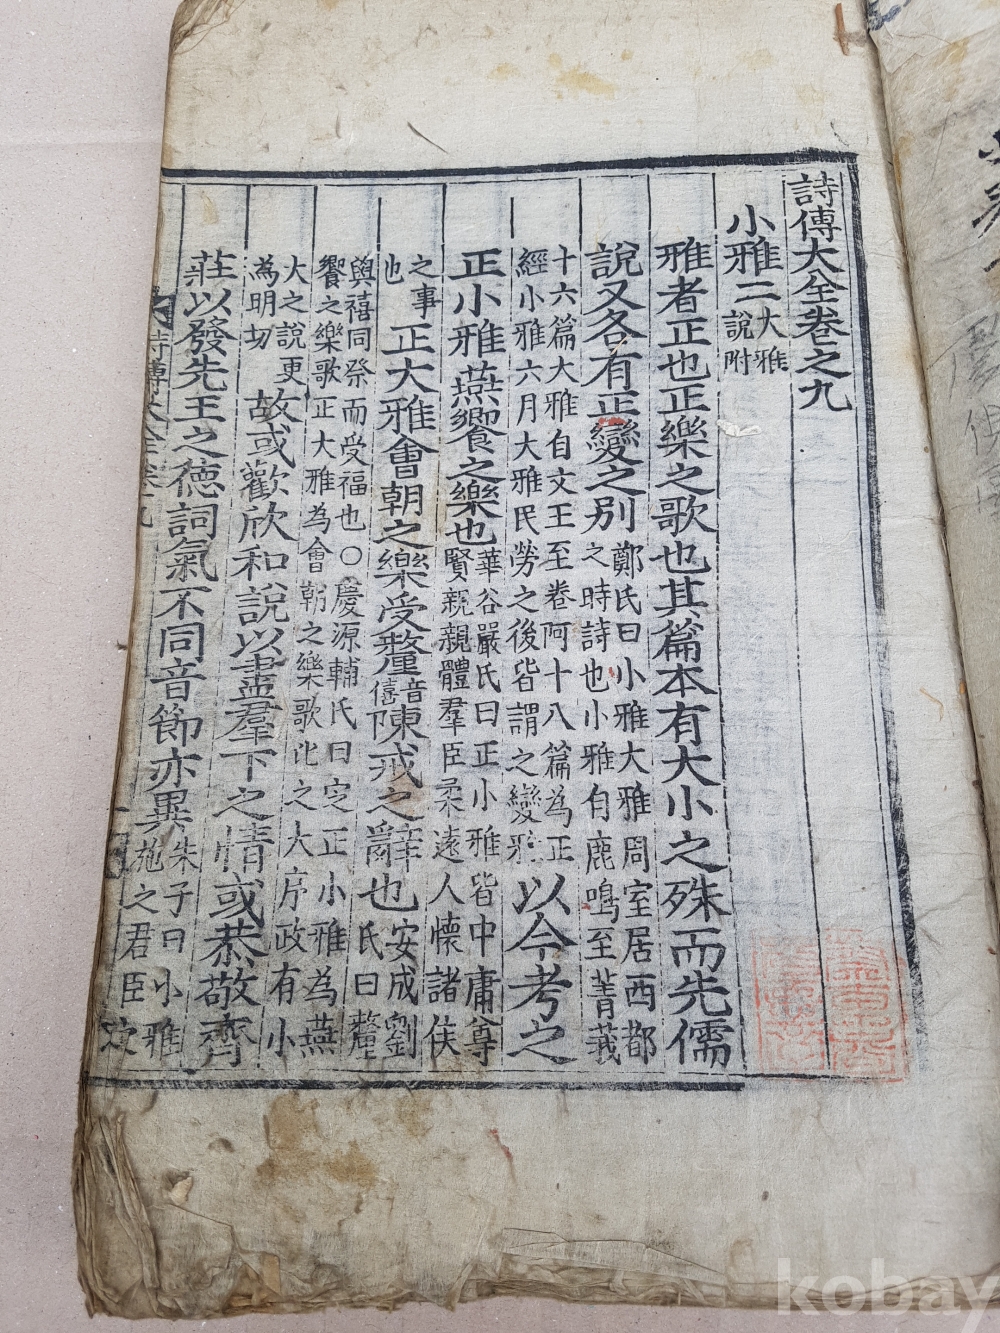 詩傳大全卷之九
小雅二 大雅說附
雅者正也正樂之歌也其篇本有大小之殊而先儒
說又各有正變之別 鄭氏曰小雅大雅周室居西都之時詩也小雅自鹿鳴至菁莪
十六篇大雅自文王至卷阿十八篇為正經小雅六月大雅民勞之後皆謂之變雅 以今考之
正小雅燕饗之樂也 華谷嚴氏曰正小雅皆中庸尊賢親親體羣臣柔遠人懷諸侯
之事也 正大雅會朝之樂受釐 音僖 陳戒之辭也 安成劉氏曰釐
與禧同祭而受福也○慶源輔氏曰定正小雅為燕饗之樂歌正大雅為會朝之樂歌比之大序政有小
大之說更為明切 故或歡欣和說以盡羣下之情或恭敬齊
莊以發先王之德詞氣不同音節亦異 朱子曰小雅施之君臣
詩傳大全卷九
kobay